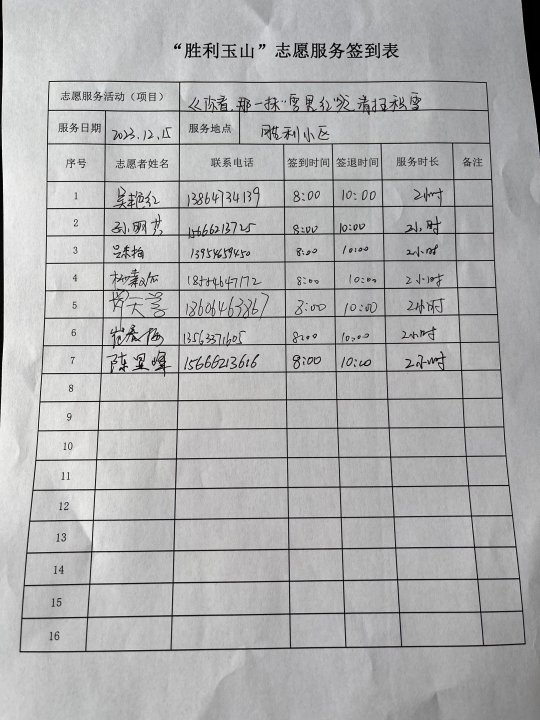 “胜利玉山”志愿服务签到表
志愿服务活动（项目） 《你看,那一抹“雪里红”》清扫积雪
服务日期 2023.12.15 服务地点 胜利小区
序号 志愿者姓名 联系电话 签到时间 签退时间 服务时长 备注
1 吴艳红 13864734139 8:00 10:00 2小时
2 孙明芳 15666213725 8:00 10:00 2小时
3 13954659450 8:00 10:00 2小时
4 18554647172 8:00 10:00 2小时
5 18606463867 8:00 10:00 2小时
6 崔春梅 13563371605 8:00 10:00 2小时
7 陈显峰 15666213616 8:00 10:00 2小时
8
9
10
11
12
13
14
15
16